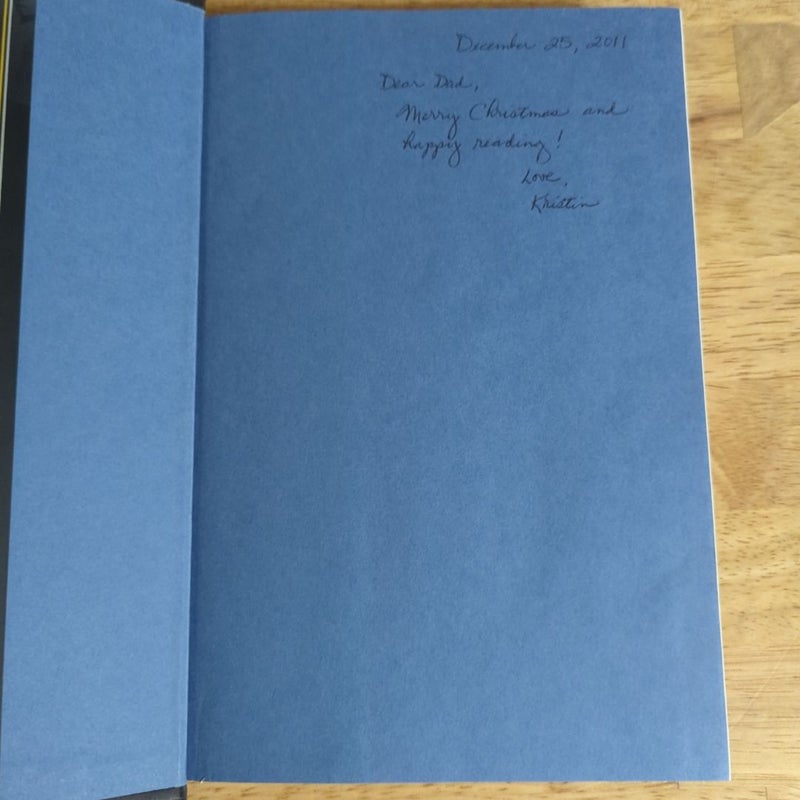 December 25, 2011
Dear Dad,
Merry Christmas and
happy reading!
Love,
Kristin